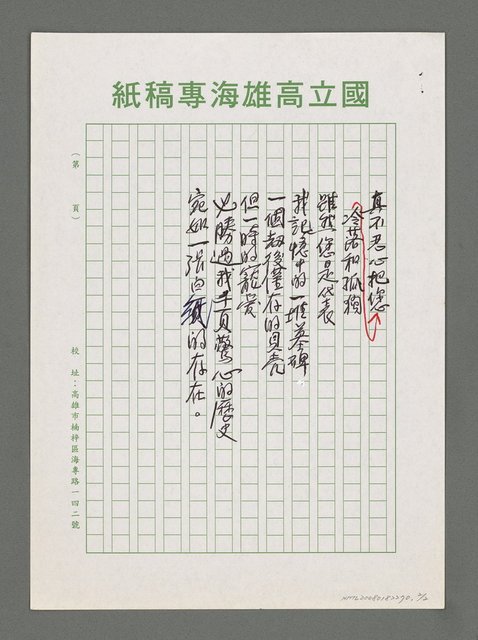 國立高雄海專稿紙
真不忍心把您
冷落和孤獨
雖然您是代表
我記憶中的一堆墓碑
一個劫後舊存的貝壳
但一時的寵愛
必勝過我千頁驚心的歷史
宛如一張白紙的存在。
（第　　頁）
校　址：高雄市楠梓區海專路一四二號
NMTL20080182290, 2/2